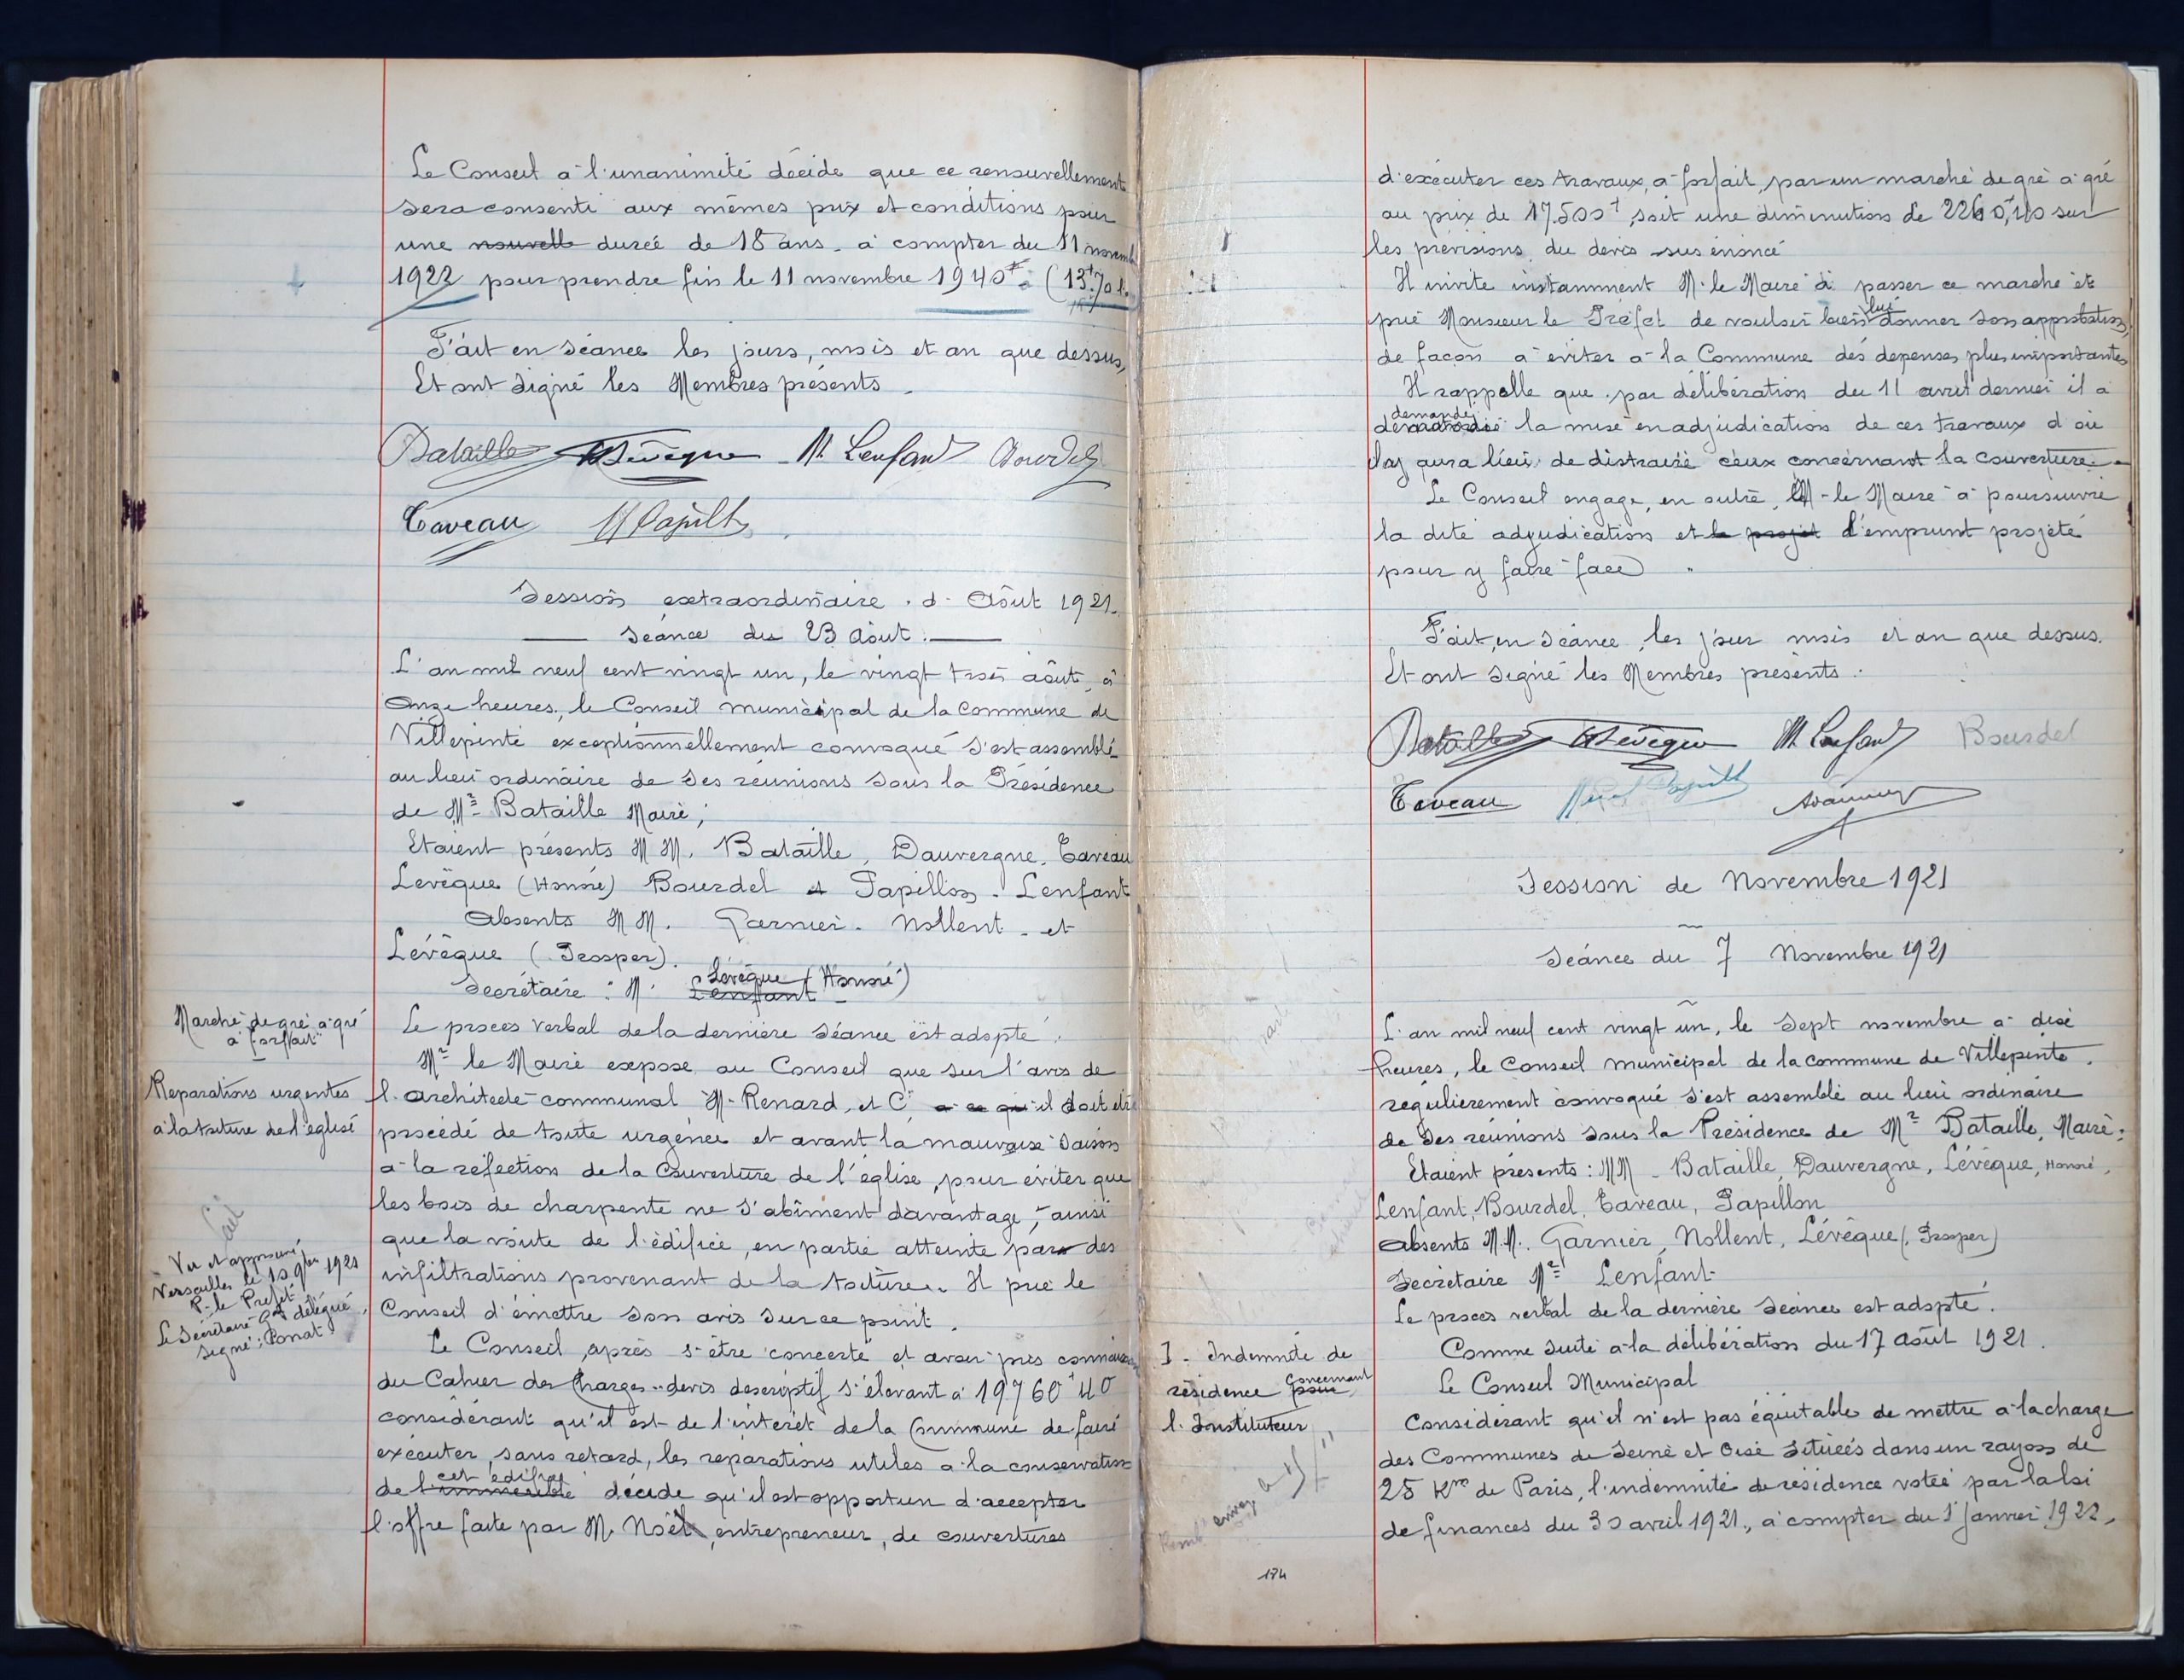 Le Conseil à l'unanimité décide que ce renouvellement
sera consenti aux mêmes prix et conditions pour
une nouvelle durée de 18 ans à compter du 11 novemb
1922 pour prendre fin le 11 novembre 1940
Fait en séance les jours, mois et an que dessus,
Et ont signé les Membres présents.
Bataille Lévêque M. Lenfant Bourdel
Taveau H Papillon
Session extraordinaire d'Août 1921.
Séance du 23 Août.
L'an mil neuf cent vingt un, le vingt trois août, à
Onze heures, le Conseil municipal de la Commune de
Villepinte exceptionnellement convoqué s'est assemblé
au lieu ordinaire de ses réunions sous la Présidence
de Mr Bataille Maire;
Etaient présents MM. Bataille, Dauvergne, Taveau
Levêque (Honoré) Bourdel et Papillon. Lenfant
Absents MM. Garnier. Nollent. et
Lévêque (Prosper).
Secrétaire : M. Lenfant Lévêque (Honoré)
Marché de gré à gré
à forfait
Le procès verbal de la dernière séance est adopté.
Mr le Maire expose au Conseil que sur l'avis de
Réparations urgentes
à la toiture de l'église
l'architecte communal M. Renard, et Cie à ce qu'il doit être
procédé de toute urgence et avant la mauvaise saison
à la réfection de la couverture de l'église, pour éviter que
les bois de charpente ne s'abîment davantage, ainsi
que la voûte de l'édifice, en partie atteinte par des
infiltrations provenant de la toiture. Il prie le
Conseil d'émettre son avis sur ce point.
Vu et approuvé
Versailles le 10 9bre 1921
P. le Préfet
Le Secrétaire Gal délégué,
Signé: Bonat
Le Conseil, après s'être concerté et avoir pris connaiss
du Cahier des Charges-devis descriptif s'élevant à 19760f40
considérant qu'il est de l'intérêt de la Commune de faire
exécuter, sans retard, les réparations utiles à la conservation
de l'immeuble cet édifice décide qu'il est opportun d'accepter
l'offre faite par M. Noël, entrepreneur, de couvertures
d'exécuter ces travaux, à forfait, par un marché de gré à gré
au prix de 17.500f, soit une diminution de 2260f,40 sur
les prévisions du devis sus énoncé
Il invite instamment M. le Maire à passer ce marché et
prie Monsieur le Préfet de vouloir bien lui donner son approbation,
de façon à éviter à la Commune des dépenses plus importantes
Il rappelle que par délibération du 11 avril dernier il a
demandé la mise en adjudication de ces travaux d'où
il y aura lieu de distraire ceux concernant la couverture.
Le Conseil engage, en outre, M. le Maire à poursuivre
la dite adjudication et le projet l'emprunt projeté
pour y faire face.
Fait, en séance, les jour mois et an que dessus.
Et ont signé les Membres présents.
Bataille Lévêque M. Lenfant Bourdel
Taveau Papillon
Session de Novembre 1921
Séance du 7 Novembre 1921
L'an mil neuf cent vingt un, le sept novembre à dix
heures, le Conseil municipal de la commune de Villepinte,
régulièrement convoqué s'est assemblé au lieu ordinaire
de ses réunions sous la Présidence de Mr Bataille, Maire;
Etaient présents: MM. Bataille, Dauvergne, Lévêque, Honoré,
Lenfant, Bourdel, Taveau, Papillon
Absents M.M. Garnier, Nollent, Lévêque (Prosper)
Secrétaire Mr Lenfant
Le procès verbal de la dernière séance est adopté.
Comme suite à la délibération du 17 Août 1921.
I. Indemnité de
résidence pour concernant
l'Instituteur
Le Conseil Municipal
Considérant qu'il n'est pas équitable de mettre à la charge
des Communes de Seine et Oise situées dans un rayon de
25 Kmes de Paris, l'indemnité de résidence votée par la loi
de finances du 30 avril 1921, à compter du 1er Janvier 1922,
174